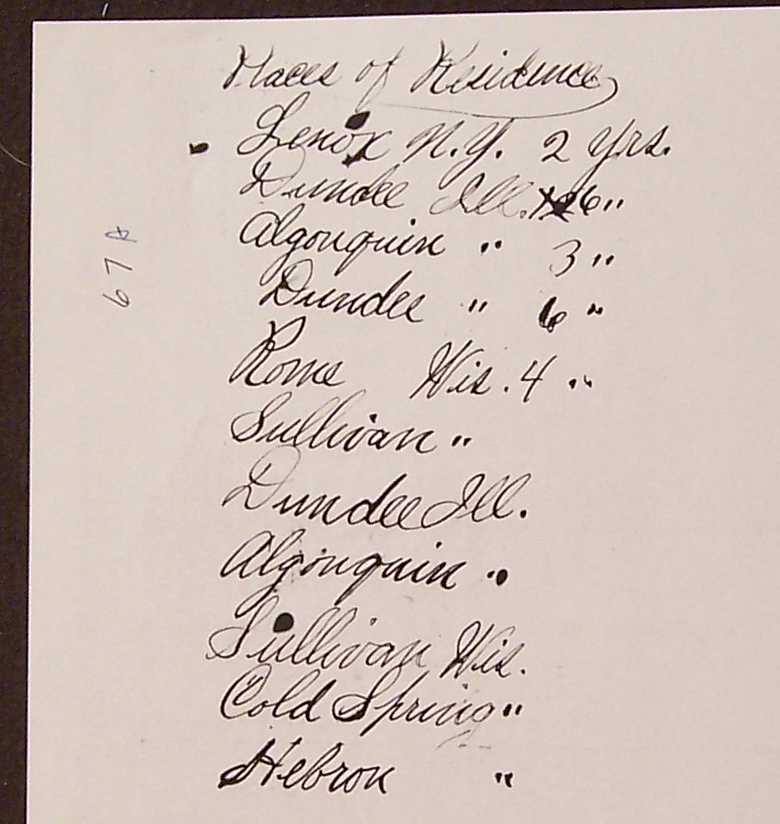 Places of Residence
Lenox N.Y. 2 Yrs.
Dundee Ill. 6 "
Algonquin " 3 "
Dundee " 6 "
Rome Wis. 4 "
Sullivan "
Dundee Ill.
Algonquin "
Sullivan Wis.
Cold Spring "
Hebron "
67A